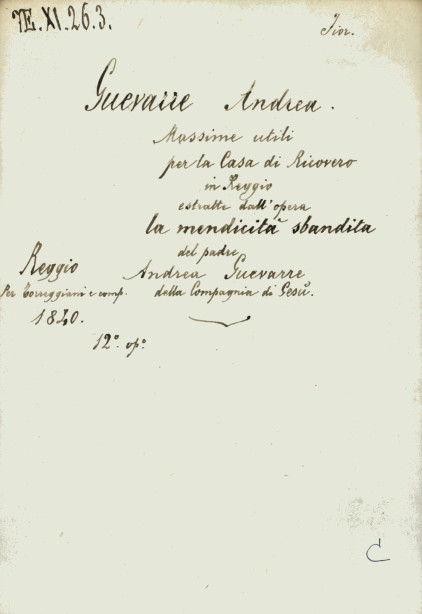 7E.XI.26.3.
Guevarre Andrea.
Massime utili
per la Casa di Ricovero
in Reggio
estratte dall'opera
la mendicità sbandita
del padre
Andrea Guevarre
della Compagnia di Gesù.
Reggio
Per Torreggiani e comp.
1840.
12°. op°.
C